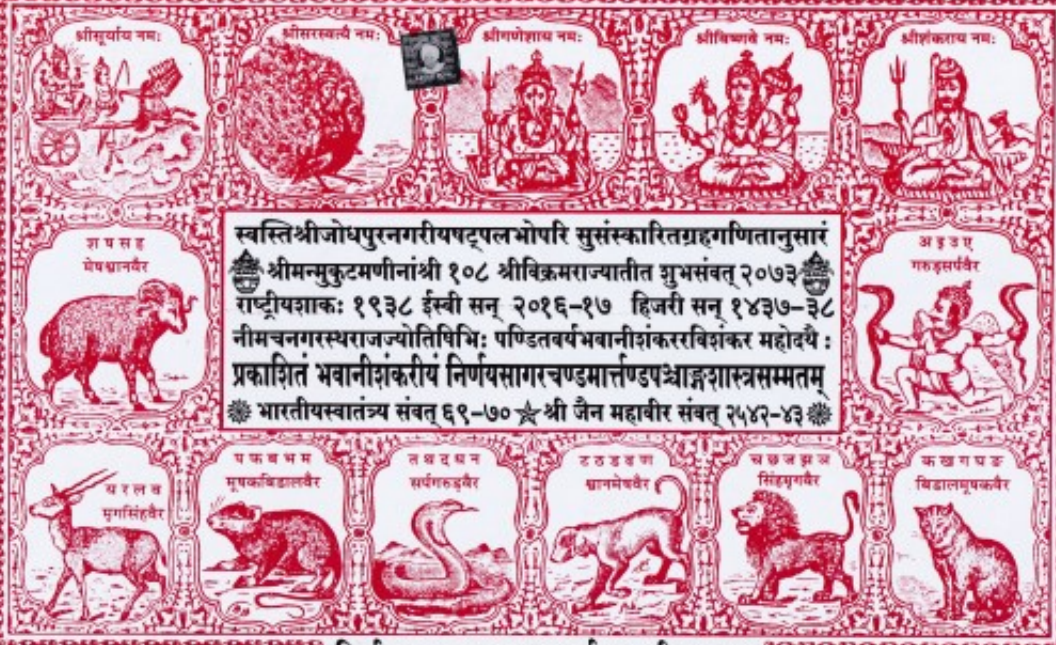 श्रीसूर्याय नमः
श्रीसरस्वत्यै नमः
श्रीगणेशाय नमः
श्रीविष्णवे नमः
श्रीशंकराय नमः
श ष स ह
मेषश्वानवैर
स्वस्तिश्रीजोधपुरनगरीयषट्पलभोपरि सुसंस्कारितग्रहगणितानुसारं
श्रीमन्मुकुटमणीनांश्री १०८ श्रीविक्रमराज्यातीत शुभसंवत् २०७३
राष्ट्रीयशाकः १९३८ ईस्वी सन् २०१६-१७ हिजरी सन् १४३७-३८
नीमचनगरस्थराजज्योतिषिभिः पण्डितवर्यभवानीशंकररविशंकर महोदयै :
प्रकाशितं भवानीशंकरीयं निर्णयसागरचण्डमार्त्तण्डपञ्चाङ्गशास्त्रसम्मतम्
भारतीयस्वातंत्र्य संवत् ६९-७० श्री जैन महावीर संवत् २५४२-४३
अ इ उ ए
गरुड़सर्पवैर
य र ल व
मृगसिंहवैर
प फ ब भ म
मूषकबिडालवैर
त थ द ध न
सर्पगरुड़वैर
ट ठ ड ढ ण
श्वानमेषवैर
च छ ज झ ञ
सिंहमृगवैर
क ख ग घ ङ
बिडालमूषकवैर